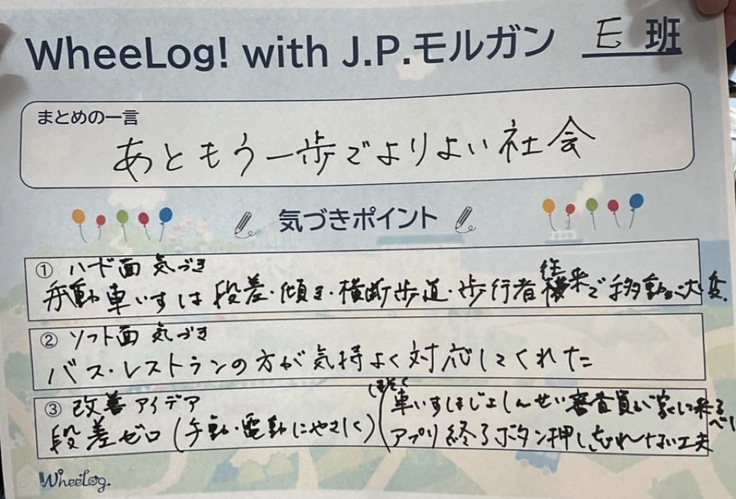 WheeLog! with J.P.モルガン E 班
まとめの一言
あともう一歩でよりよい社会
気づきポイント
① ハード面 気づき
手動車いすは段差・傾き・横断歩道・歩行者往来で移動が大変.
② ソフト面 気づき
バス・レストランの方が気持よく対応してくれた
③ 改善アイデア
段差ゼロ (手動・電動にやさしく)
車いすほじょしんせい審査員が家に来る
アプリ終了ボタン押し忘れない工夫
WheeLog.